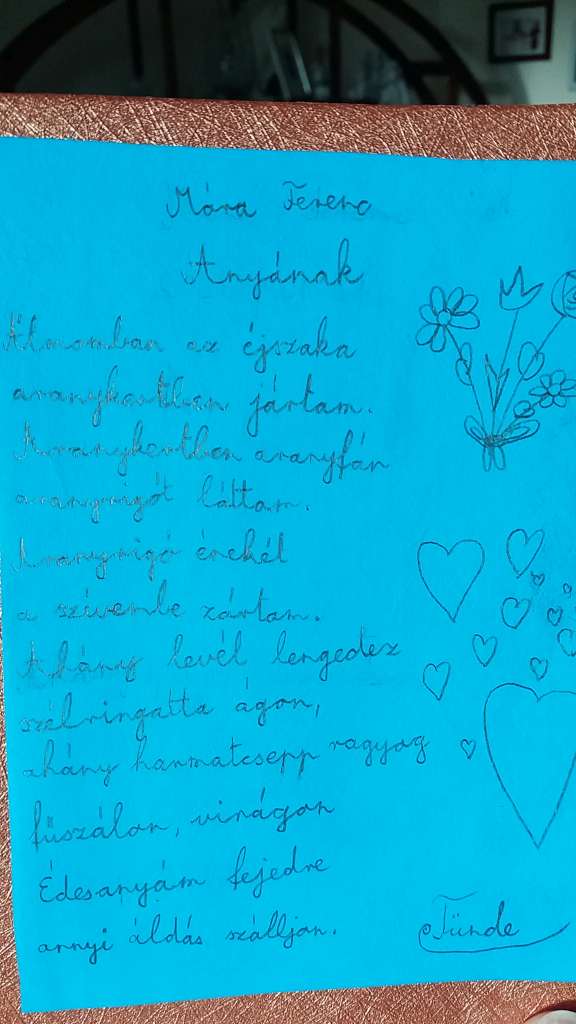 Móra Ferenc
Anyának
Álmomban az éjszaka
aranykertben jártam.
Aranykertben aranyfán
aranyrigót láttam.
Aranyrigó énekét
a szívembe zártam.
Ahány levél lengedez
szélringatta ágon,
ahány harmatcsepp ragyog
fűszálon, virágon
Édesanyám fejedre
annyi áldás szálljon.
Tünde